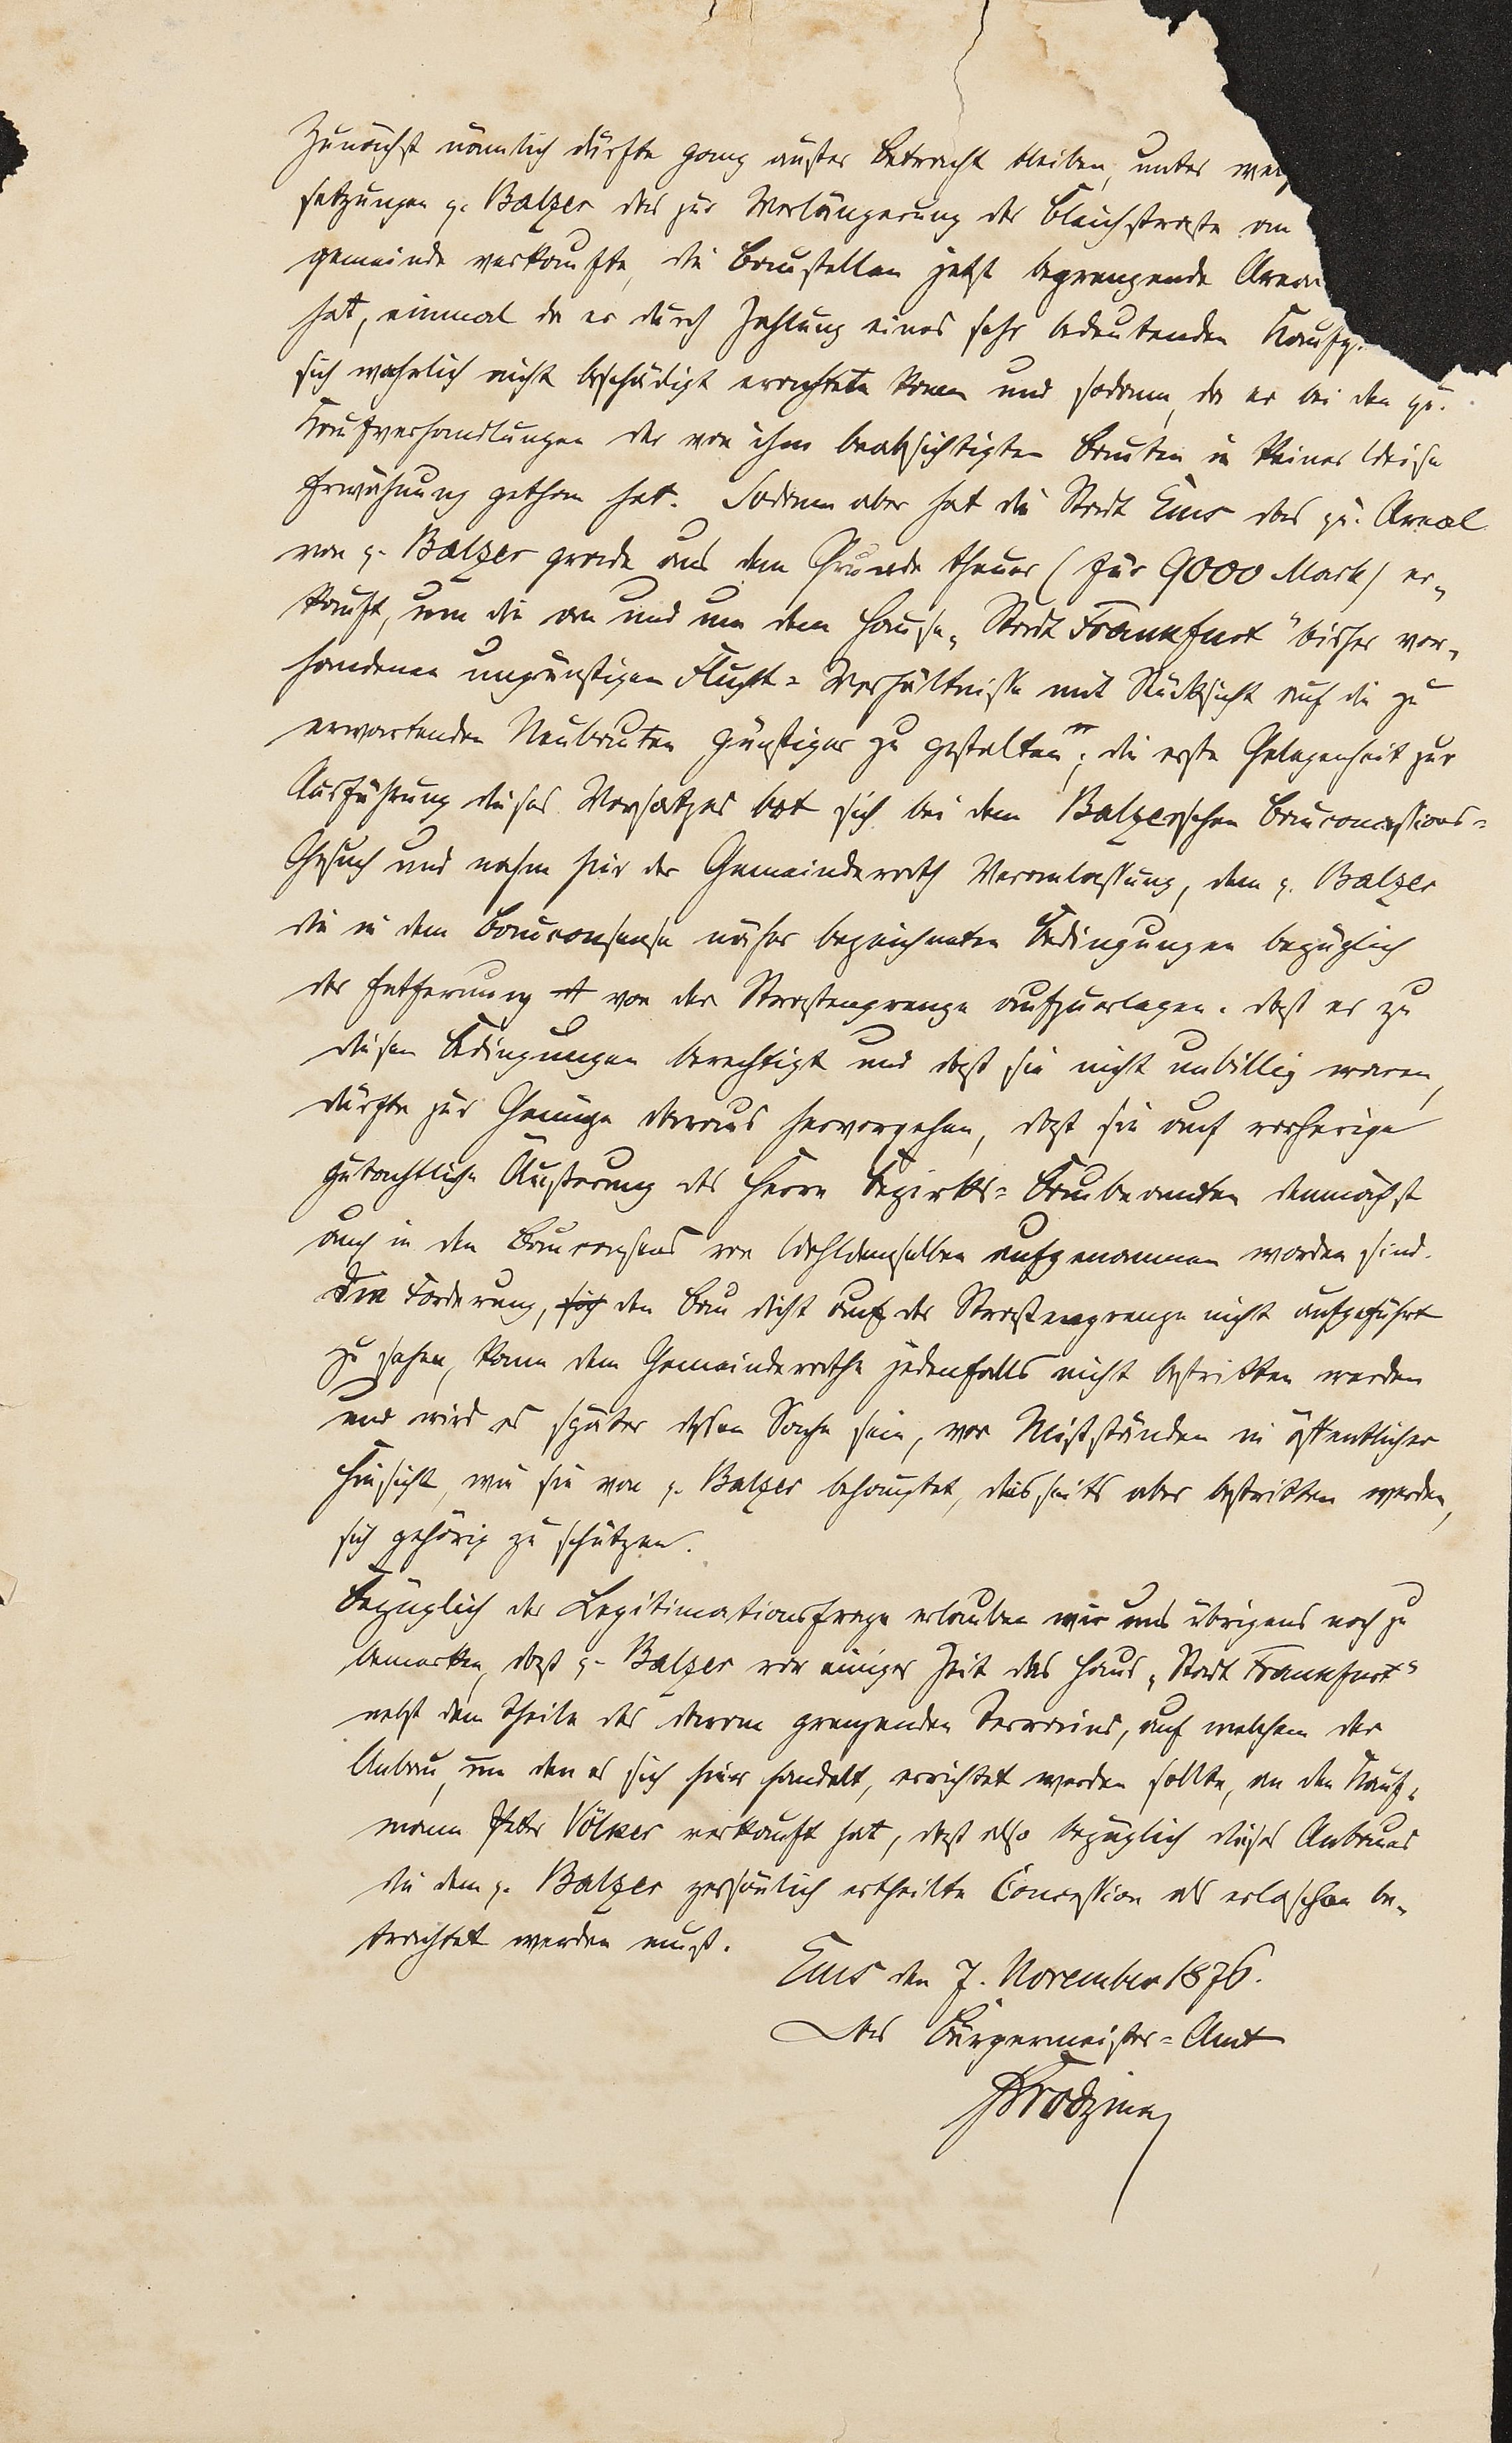 Zunächst nämlich dürfte ganz außer Betracht bleiben, unter
setzungen p. Balzer das zur Verlängerung der Bleichstraße an
gemeinde verkaufte, die Baustellen jetzt begrenzende
hat, einmal da er durch Zahlung eines sehr bedeutenden
sich wahrlich nicht beschädigt erachten kann und sodann, da er bei den qu.
Kaufverhandlungen der von ihm beabsichtigten Bauten in keiner Weise
Erwähnung gethan hat. Sodann aber hat die Stadt Ems das qu. Areal
von p. Balzer grade aus dem Grunde theuer (für 9000 Mark) er-
kauft, um die an und um dem Hause „Stadt Frankfurt" bisher vor-
handenen ungünstigen Flucht-Verhältnisse mit Rücksicht auf die zu
erwartenden Neubauten günstiger zu gestalten; die erste Gelegenheit zur
Ausführung dieses Vorsatzes bot sich bei dem Balzerschen Bauconcessions-
Gesuch und nahm hier der Gemeinderath Veranlassung, dem p. Balzer
die in dem Bauconsense näher bezeichneten Bedingungen bezüglich
der Entfernung von der Straßengrenze aufzuerlegen. Daß er zu
diesen Bedingungen berechtigt und daß sie nicht unbillig waren,
dürfte zur Genüge daraus hervorgehen, daß sie auf vorherige
gutachtliche Äußerung des Herrn Bezirks-Baubeamten demnächst
auch in den Bauconsens von Wohldemselben aufgenommen worden sind.
Die Forderung, sich den Bau dicht auf der Straßengrenze nicht aufgeführt
zu sehen, kann dem Gemeinderathe jedenfalls nicht bestritten werden
und wird es später dessen Sache sein, vor Mißständen in öffentlicher
Hinsicht, wie sie von p. Balzer behauptet, diesseits aber bestritten werden,
sich gehörig zu schützen.
Bezüglich der Legitimationsfrage erlauben wir uns übrigens noch zu
bemerken, daß p. Balzer vor einiger Zeit das Haus „Stadt Frankfurt"
nebst dem Theile des daran grenzenden Terrains, auf welchem der
Anbau, um den es sich hier handelt, errichtet werden sollte, an den Kauf-
mann Peter Völker verkauft hat, daß also bezüglich dieses Anbaues
die dem p. Balzer persönlich ertheilte Concession als erloschen be-
trachtet werden muß.
Ems den 7. November 1876.
Das Bürgermeister-Amt